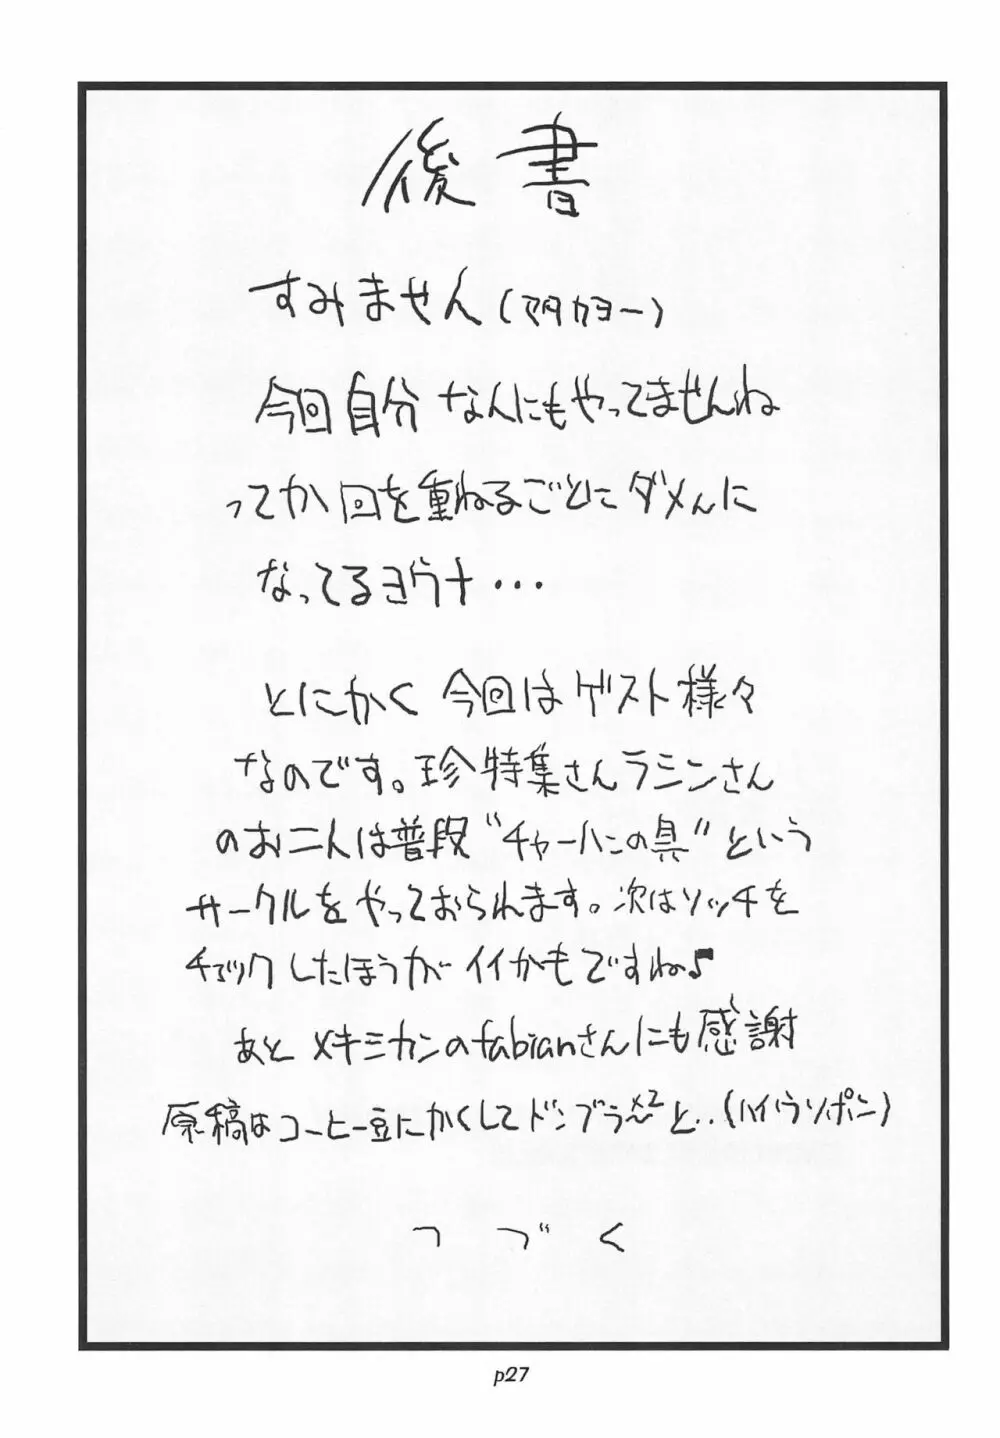 後書
すみません(マタカヨー)
今回自分なんにもやってませんね
ってか回を重ねるごとにダメんに
なってるヨウナ・・・
とにかく今回はゲスト様々
なのです。珍特集さんラミンさん
のお二人は普段“チャーハンの具”という
サークルをやっておられます。次はソッチを
チェックしたほうがイイかもですね♪
あとメキシカンのfabianさんにも感謝
原稿はコーヒー豆にかくしてドンブラ〜×2と・・(ハイハラソポン)
つづく
p27